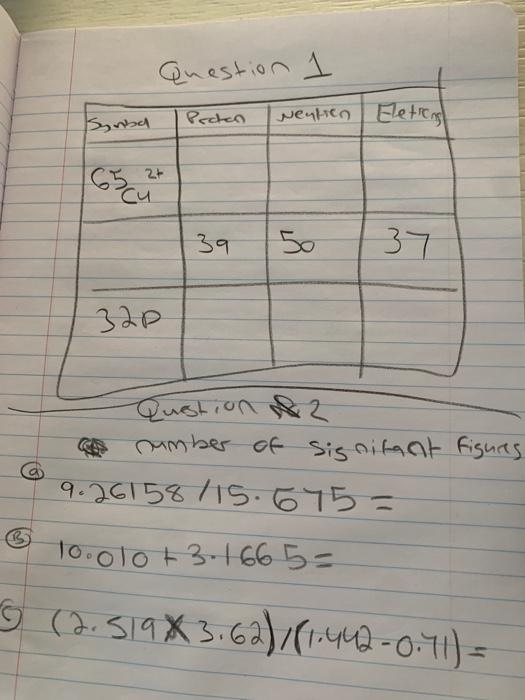 Question 1
Symbol Proton Neutron Eletrons
65 2+
Cu
39 50 37
32P
Question 2
number of signifant figures
a 9.26158/15.675=
B 10.010+3.1665=
C (2.519X3.62)/(1.442-0.71)=